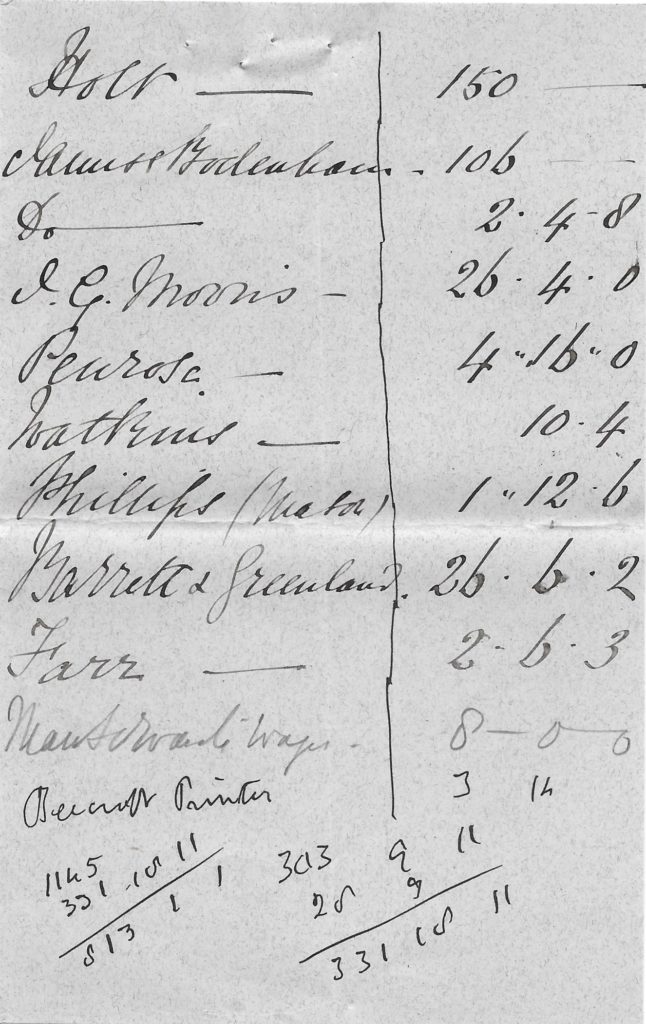 Holt — 150 —
James & Bodenham - 106 — —
Do — 2 . 4 - 8
J. G. Morris - 26 . 4 . 0
Penrose - 4 " 16 " 0
Watkins — 10 . 4
Phillips (Mason) 1 " 12 . 6
Barrett & Greenland. 26 . 6 . 2
Farr — 2 . 6 . 3
Manservants Wages - 8 - 0 - 0
Beecroft Printer 3 14
1145
331 . 18 11
813 1 1
303 9 11
28 9
331 18 11